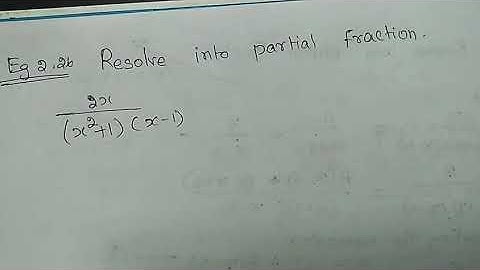 Eg 2.26 Resolve into partial fraction.
2x
(x²+1) (x-1)